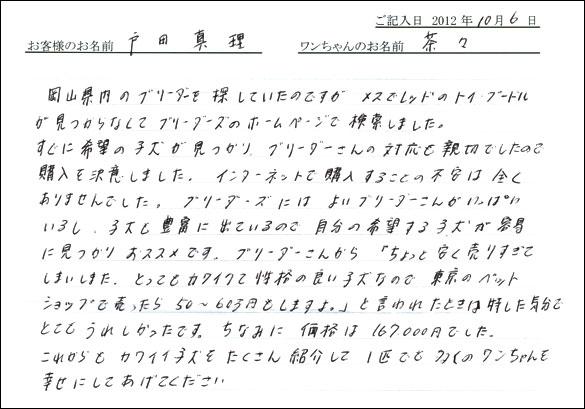 ご記入日 2012年10月6日
お客様のお名前 戸田真理 ワンちゃんのお名前 茶々
岡山県内のブリーダーを探していたのですが メスでレッドのトイ・プードル
が見つからなくて ブリーダーズのホームページで検索しました。
すぐに希望の子犬が見つかり、ブリーダーさんの対応も親切でしたので
購入を決意しました。インターネットで購入することの不安は全く
ありませんでした。ブリーダーズには よいブリーダーさんがいっぱい
いるし、子犬も豊富に出ているので 自分の希望する子犬が容易
に見つかり おススメです。ブリーダーさんから 「ちょっと安く売りすぎて
しまいました。とってもカワイクて性格の良い子犬なので 東京のペット
ショップで売ったら 50～60万円もしますよ。」と言われたときは得した気分で
とてもうれしかったです。ちなみに 価格は167000円でした。
これからも カワイイ子犬をたくさん紹介して 1匹でも多くのワンちゃんを
幸せにしてあげてください